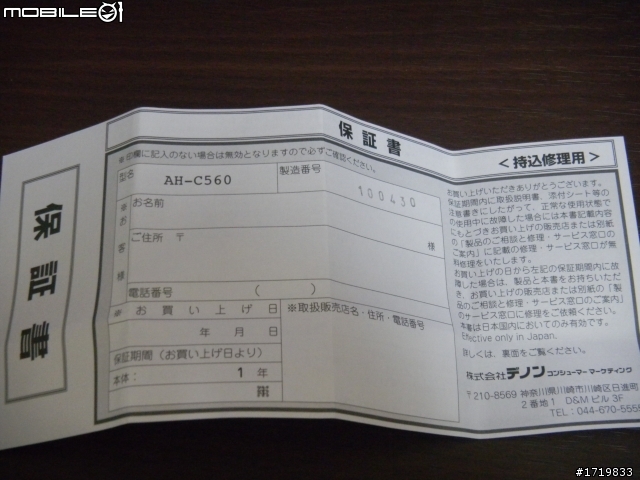 MOBILE01
保証書
保証書
<持込修理用>
※印欄に記入のない場合は無効となりますので必ずご確認ください。
型名
AH-C560
製造番号
100430
※お客様
お名前
様
ご住所 〒
電話番号 ( )
※ お買い上げ日
年 月 日
保証期間(お買い上げ日より)
本体: 1年
※取扱販売店名・住所・電話番号
お買い上げいただきありがとうございます。
保証期間内に取扱説明書、添付シート等の
注意書きにしたがって、正常な使用状態で
の使用中に故障した場合には本書記載内容
にもとづきお買い上げの販売店または別紙
の「製品のご相談と修理・サービス窓口の
ご案内」に記載の修理・サービス窓口が無
料修理をいたします。
お買い上げの日から左記の保証期間内に故
障した場合は、製品と本書をお持ちいただ
き、お買い上げの販売店または別紙の「製
品のご相談と修理・サービス窓口のご案内」
のサービス窓口に修理をご依頼ください。
本書は日本国内においてのみ有効です。
Effective only in Japan.
詳しくは、裏面をご覧ください。
株式会社デノン コンシューマー マーケティング
〒210-8569 神奈川県川崎市川崎区日進町
2番地1 D&Mビル3F
TEL: 044-670-5555
#1719833